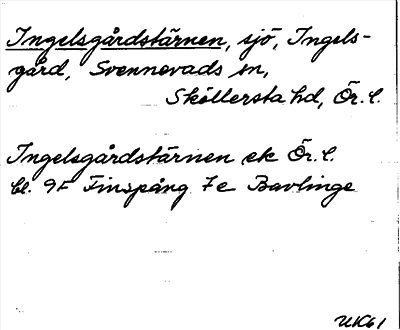 Ingelsgårdstärnen, sjö, Ingels-
gård, Svennevads sn,
Sköllersta hd, Ör. l.
Ingelsgårdstärnen ek Ör. l.
bl. 9F Finspång 7e Bavlinge
UK61